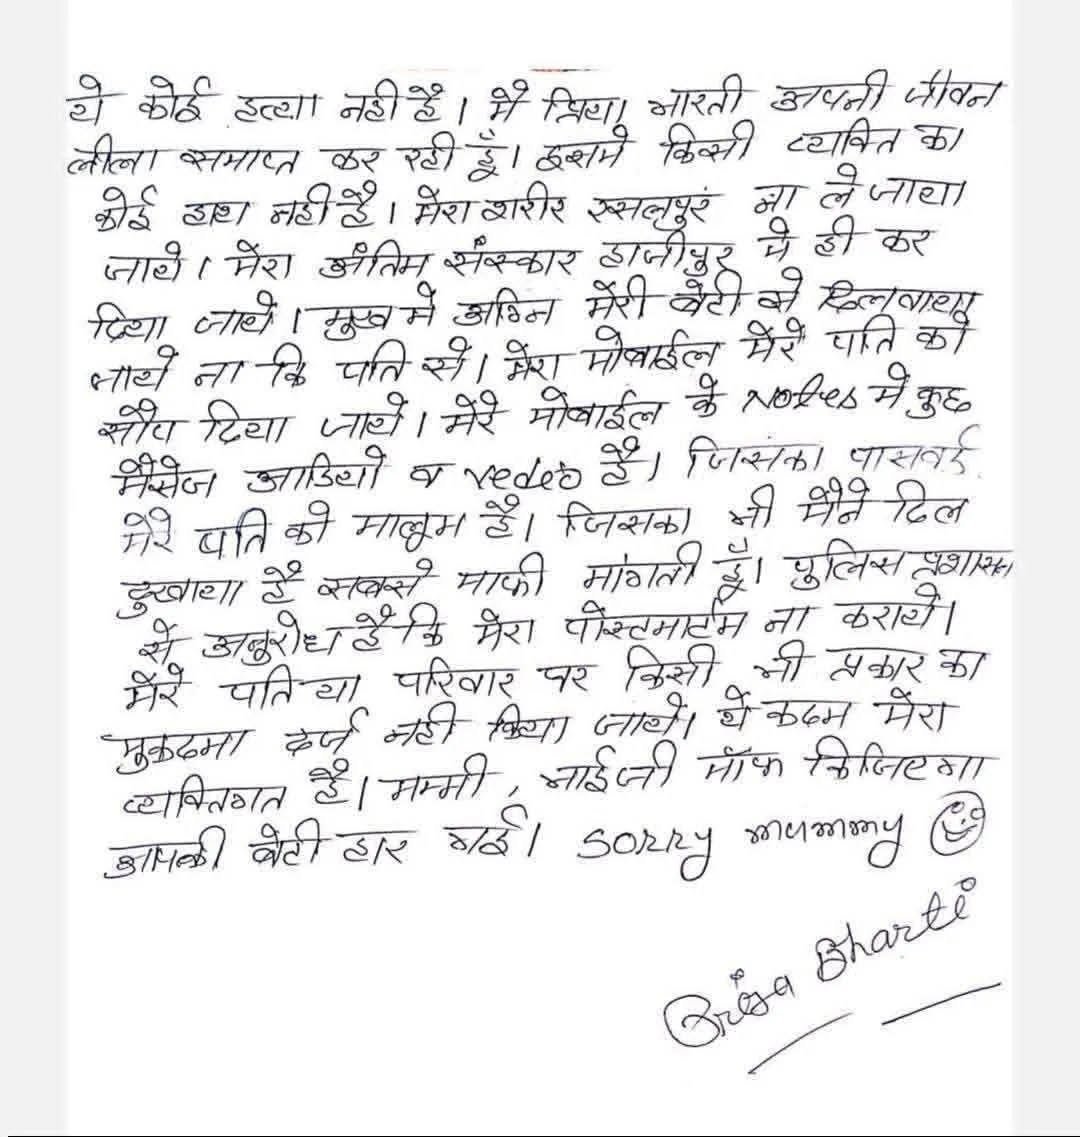 ये कोई हत्या नही है। मै प्रिया भारती अपनी जीवन
लीला समाप्त कर रही हूँ। इसमे किसी व्यक्ति का
कोई हाथ नही है। मेरा शरीर रसलपुर ना ले जाया
जाये। मेरा अंतिम संस्कार हाजीपुर मे ही कर
दिया जाये। मुख मे अग्नि मेरी बेटी से दिलवाया
जाये ना कि पति से। मेरा मोबाईल मेरे पति को
सौप दिया जाये। मेरे मोबाईल के Notes मे कुछ
मैसेज आडियो व vedeo है। जिसका पासवर्ड
मेरे पति को मालूम है। जिसका भी मैने दिल
दुखाया है सबसे माफी मांगती हूँ। पुलिस प्रशासन
से अनुरोध है कि मेरा पोस्टमार्टम ना कराये।
मेरे पति या परिवार पर किसी भी प्रकार का
मुकदमा दर्ज नही किया जाये। ये कदम मेरा
व्यक्तिगत है। मम्मी, भाईजी मॉफ किजिएगा
आपकी बेटी हार गई। sorry mummy
Priya Bharti